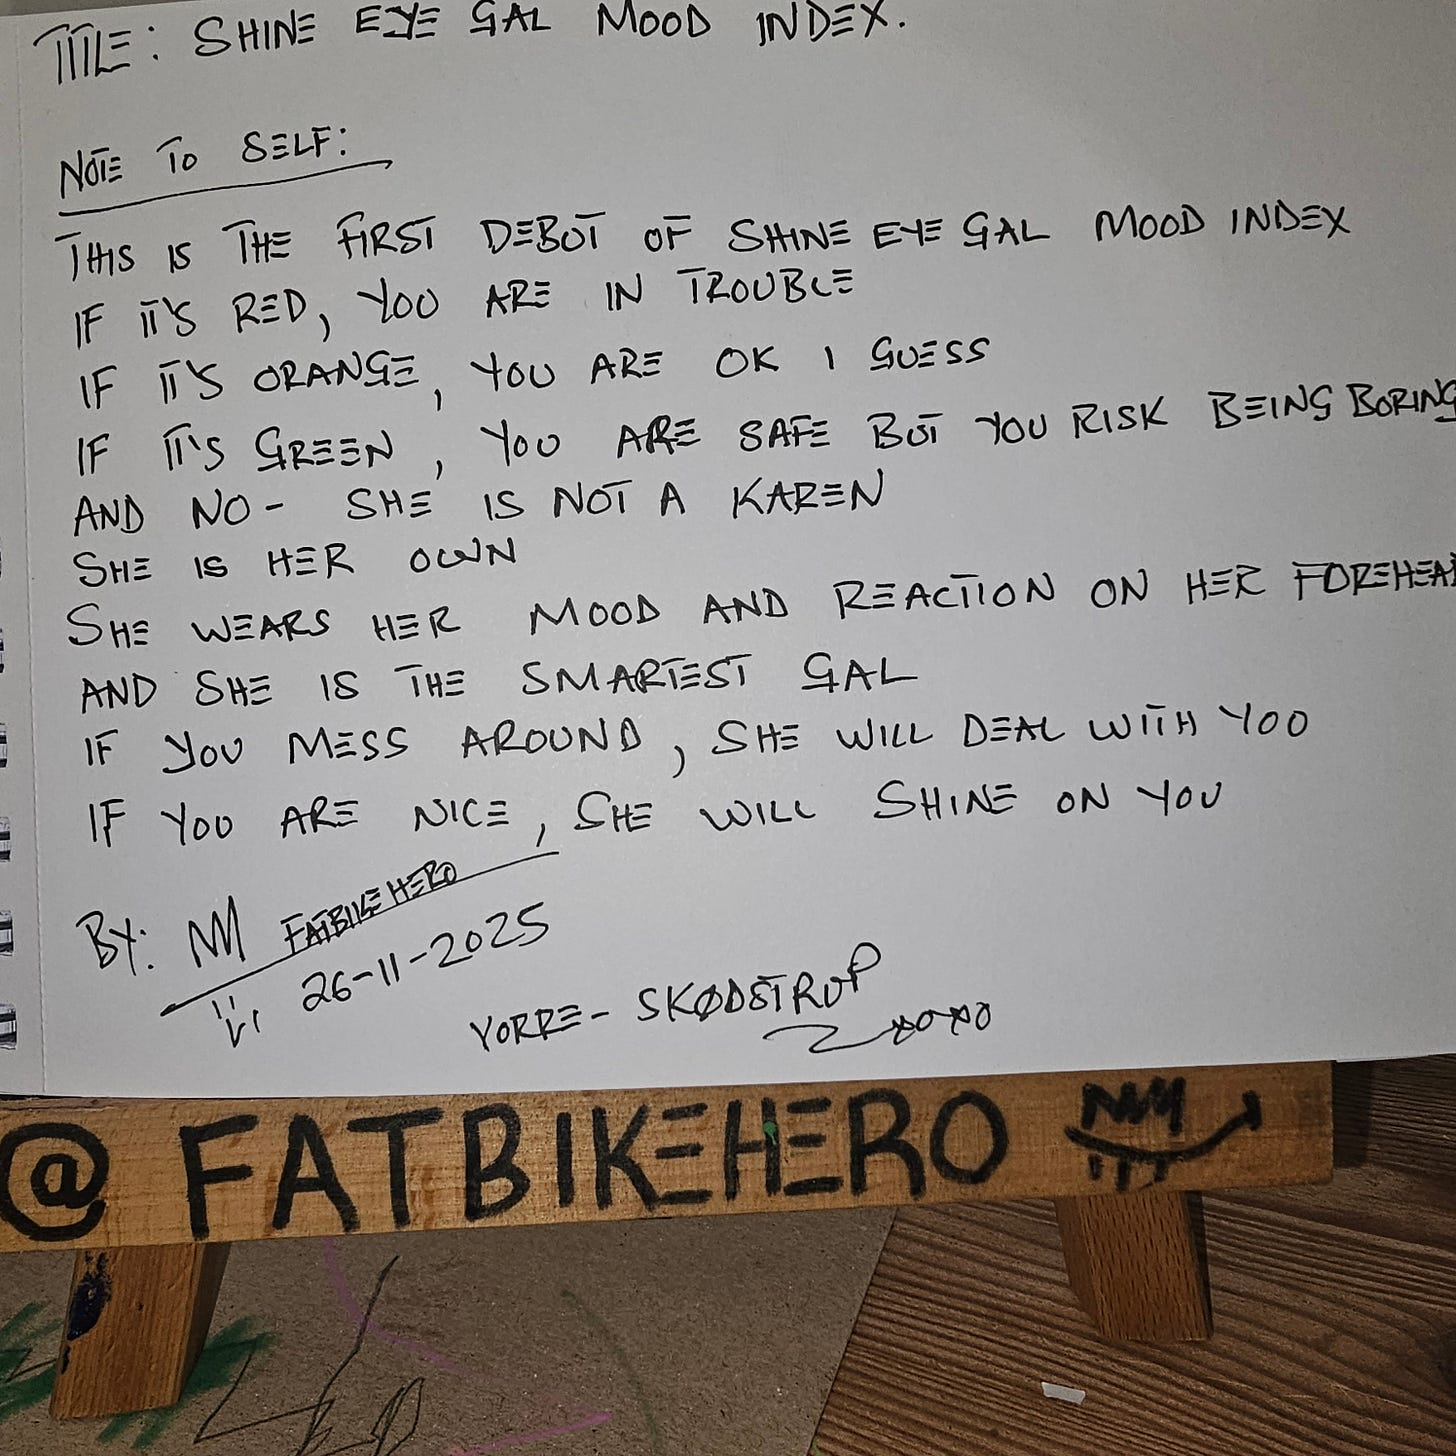 TITLE: SHINE EYE GAL MOOD INDEX.
NOTE TO SELF:
THIS IS THE FIRST DEBUT OF SHINE EYE GAL MOOD INDEX
IF IT'S RED, YOU ARE IN TROUBLE
IF IT'S ORANGE, YOU ARE OK I GUESS
IF IT'S GREEN, YOU ARE SAFE BUT YOU RISK BEING BORING
AND NO- SHE IS NOT A KAREN
SHE IS HER OWN
SHE WEARS HER MOOD AND REACTION ON HER FOREHEA
AND SHE IS THE SMARTEST GAL
IF YOU MESS AROUND, SHE WILL DEAL WITH YOU
IF YOU ARE NICE, SHE WILL SHINE ON YOU
BY: FATBIKEHERO
26-11-2025
YORRE- SKØDSTRUP
XOXO
@FATBIKEHERO